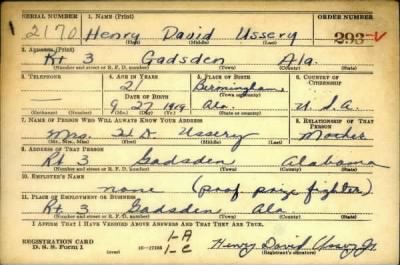 SERIAL NUMBER 1. NAME (Print) ORDER NUMBER
2170 Henry David Ussery 293-V
(First) (Middle) (Last)
2. ADDRESS (Print)
Rt 3 Gadsden Ala.
(Number and street or R. F. D. number) (Town) (County) (State)
3. TELEPHONE 4. AGE IN YEARS 5. PLACE OF BIRTH 6. COUNTRY OF CITIZENSHIP
— 21 Birmingham
(Town or county)
DATE OF BIRTH
9 27 1919 Ala. U.S.A.
(Exchange) (Number) (Mo.) (Day) (Yr.) (State or country)
7. NAME OF PERSON WHO WILL ALWAYS KNOW YOUR ADDRESS 8. RELATIONSHIP OF THAT PERSON
Mrs. H D. Ussery Mother
(Mr., Mrs., Miss) (First) (Middle) (Last)
9. ADDRESS OF THAT PERSON
Rt 3 Gadsden Alabama
(Number and street or R. F. D. number) (Town) (County) (State)
10. EMPLOYER'S NAME
none (prof prize fighter)
11. PLACE OF EMPLOYMENT OR BUSINESS
Rt 3 Gadsden Ala
(Number and street or R. F. D. number) (Town) (County) (State)
I AFFIRM THAT I HAVE VERIFIED ABOVE ANSWERS AND THAT THEY ARE TRUE.
REGISTRATION CARD 1-A
D. S. S. Form 1 1-C Henry David Ussery Jr.
(Registrant's signature)